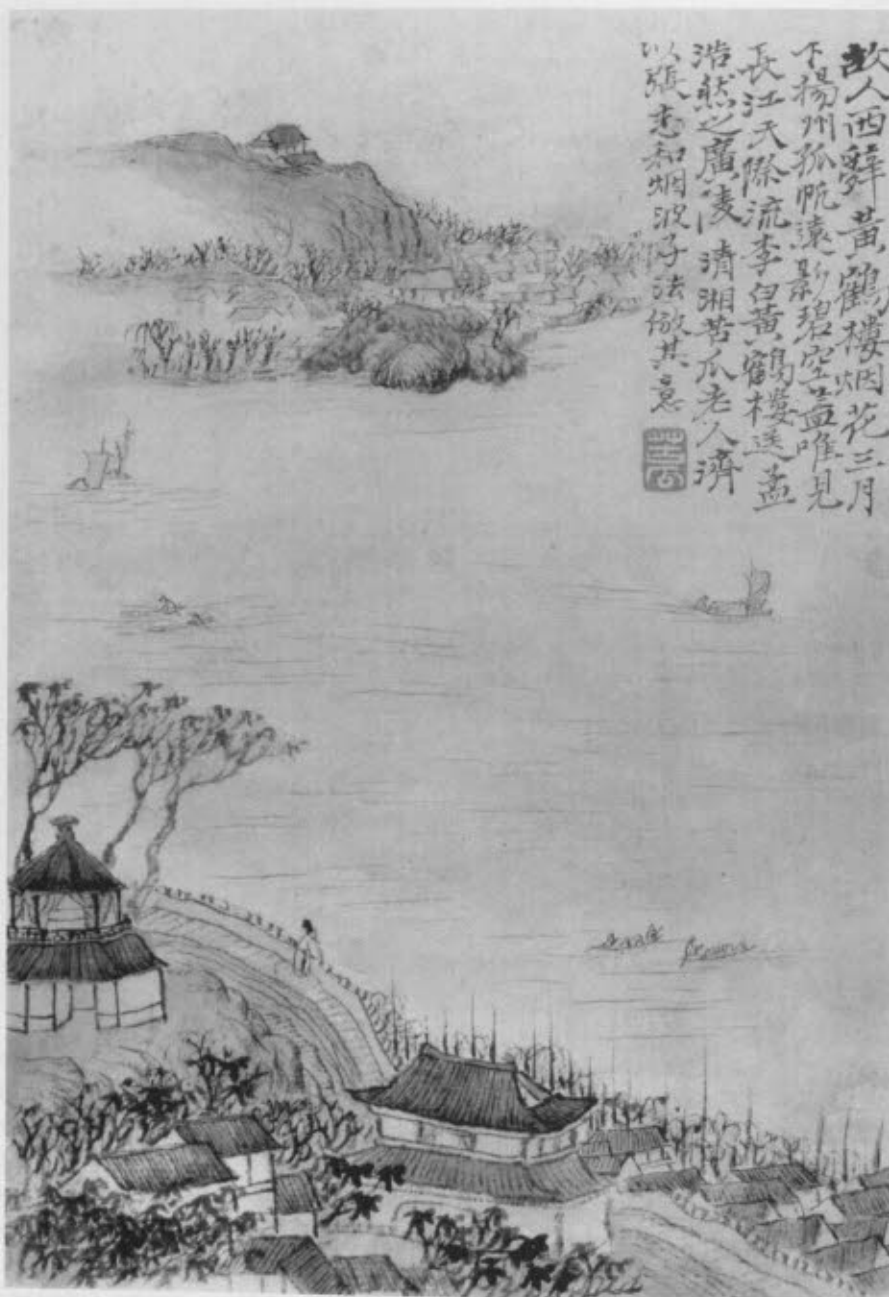 故人西辤黄鶴樓烟花三月
下揚州孤帆遠影碧空盡唯見
長江天際流李白黄鶴樓送孟
浩然之廣陵 清湘苦瓜老人濟
以張志和烟波子法倣其意